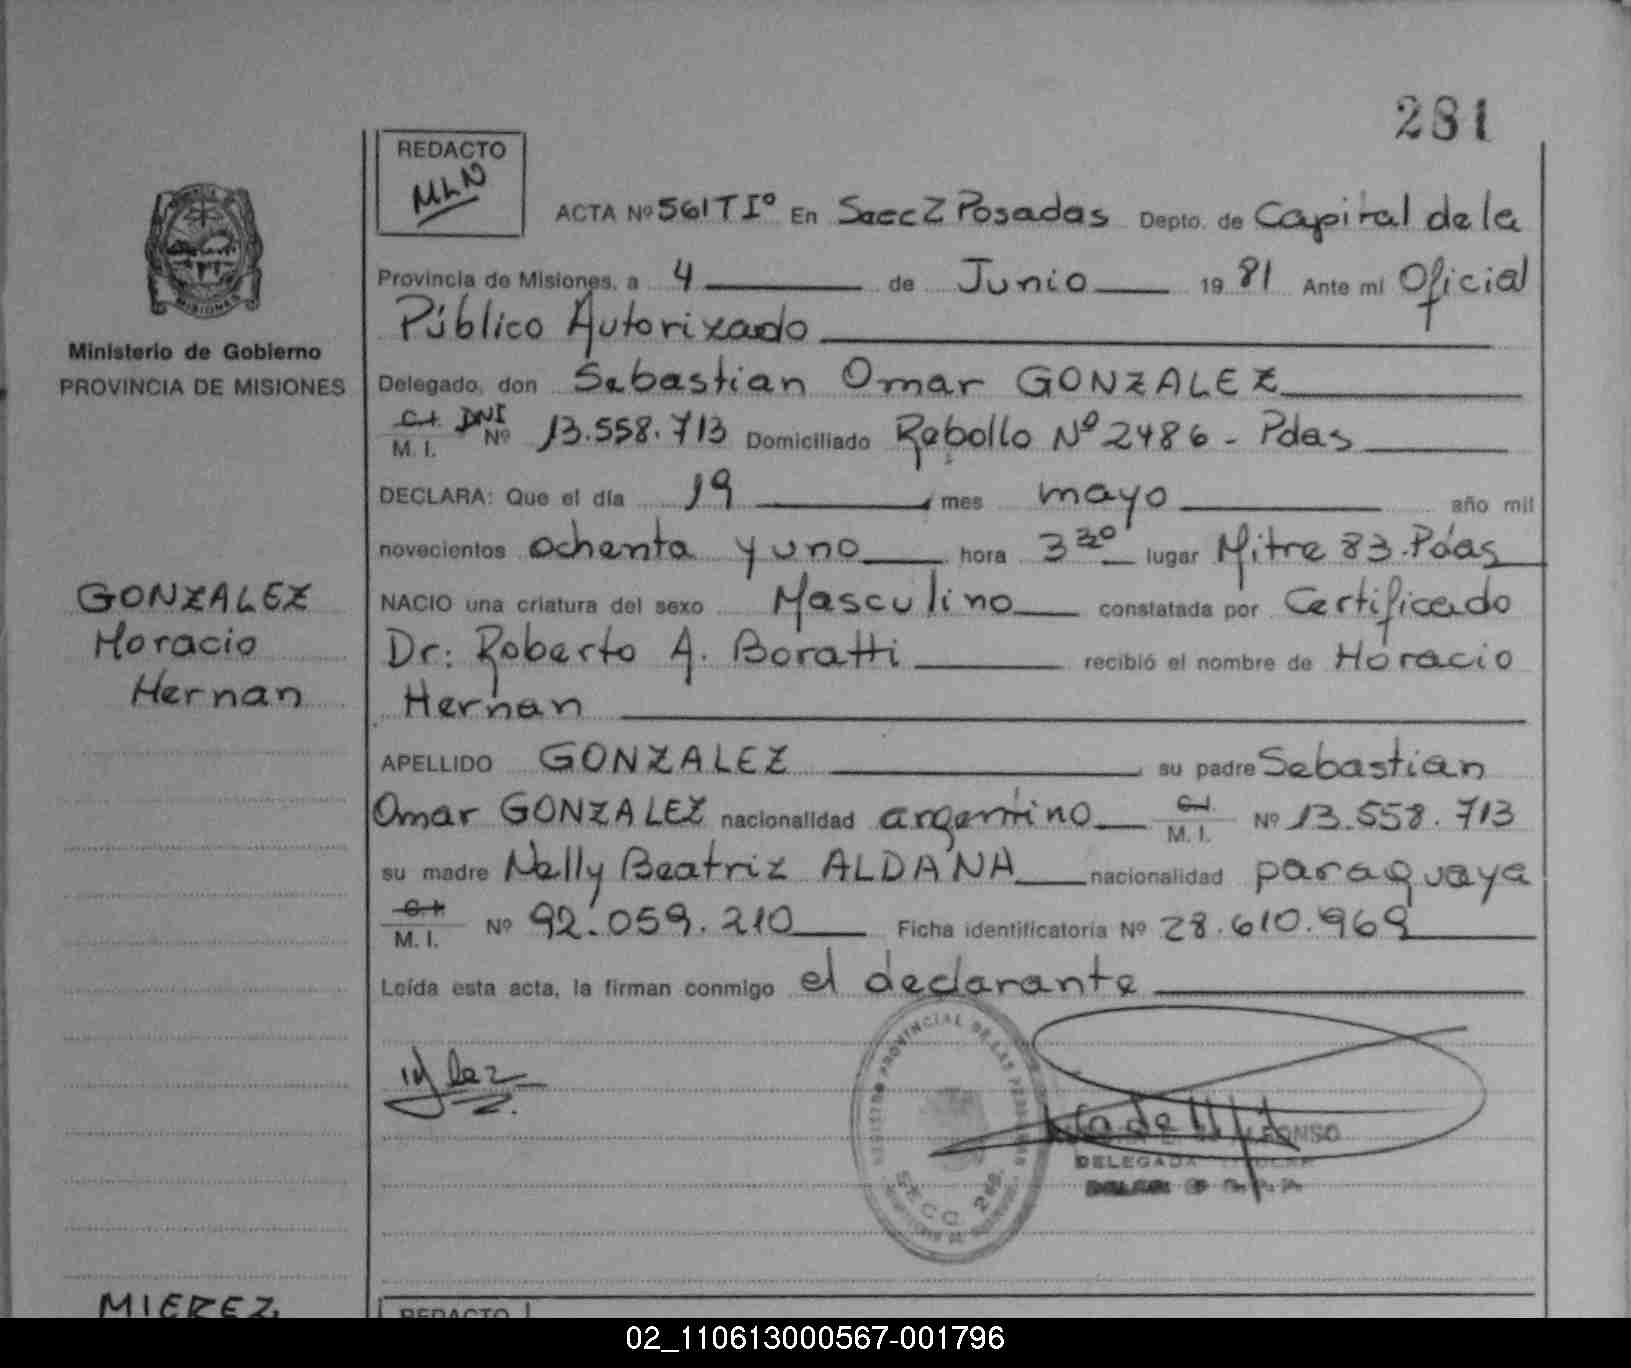 281
REDACTO
MLN
ACTA Nº 561 T Iº En Secc 2 Posadas Depto. de Capital de la
Provincia de Misiones, a 4 de Junio 1981 Ante mi Oficial
Público Autorizado
MISIONES
Ministerio de Gobierno
PROVINCIA DE MISIONES
Delegado, don Sebastian Omar GONZALEZ
C.I. DNI
M. I. Nº 13.558.713 Domiciliado Rebollo Nº 2486 - Pdas
DECLARA: Que el día 19 mes mayo año mil
novecientos ochenta y uno hora 3 30 lugar Mitre 83 - Pdas
GONZALEZ
Horacio
Hernan
NACIO una criatura del sexo Masculino constatada por Certificado
Dr: Roberto A. Boratti recibió el nombre de Horacio
Hernan
APELLIDO GONZALEZ su padre Sebastian
Omar GONZALEZ nacionalidad argentino C.I. M. I. Nº 13.558.713
su madre Nelly Beatriz ALDANA nacionalidad paraguaya
C.I. M. I. Nº 92.059.210 Ficha identificatoria Nº 28.610.969
Leída esta acta, la firman conmigo el declarante
PROVINCIAL DE LAS PERSONAS
SECC. 2
DELEGADA TITULAR
MIEREZ
REDACTO
02_110613000567-001796